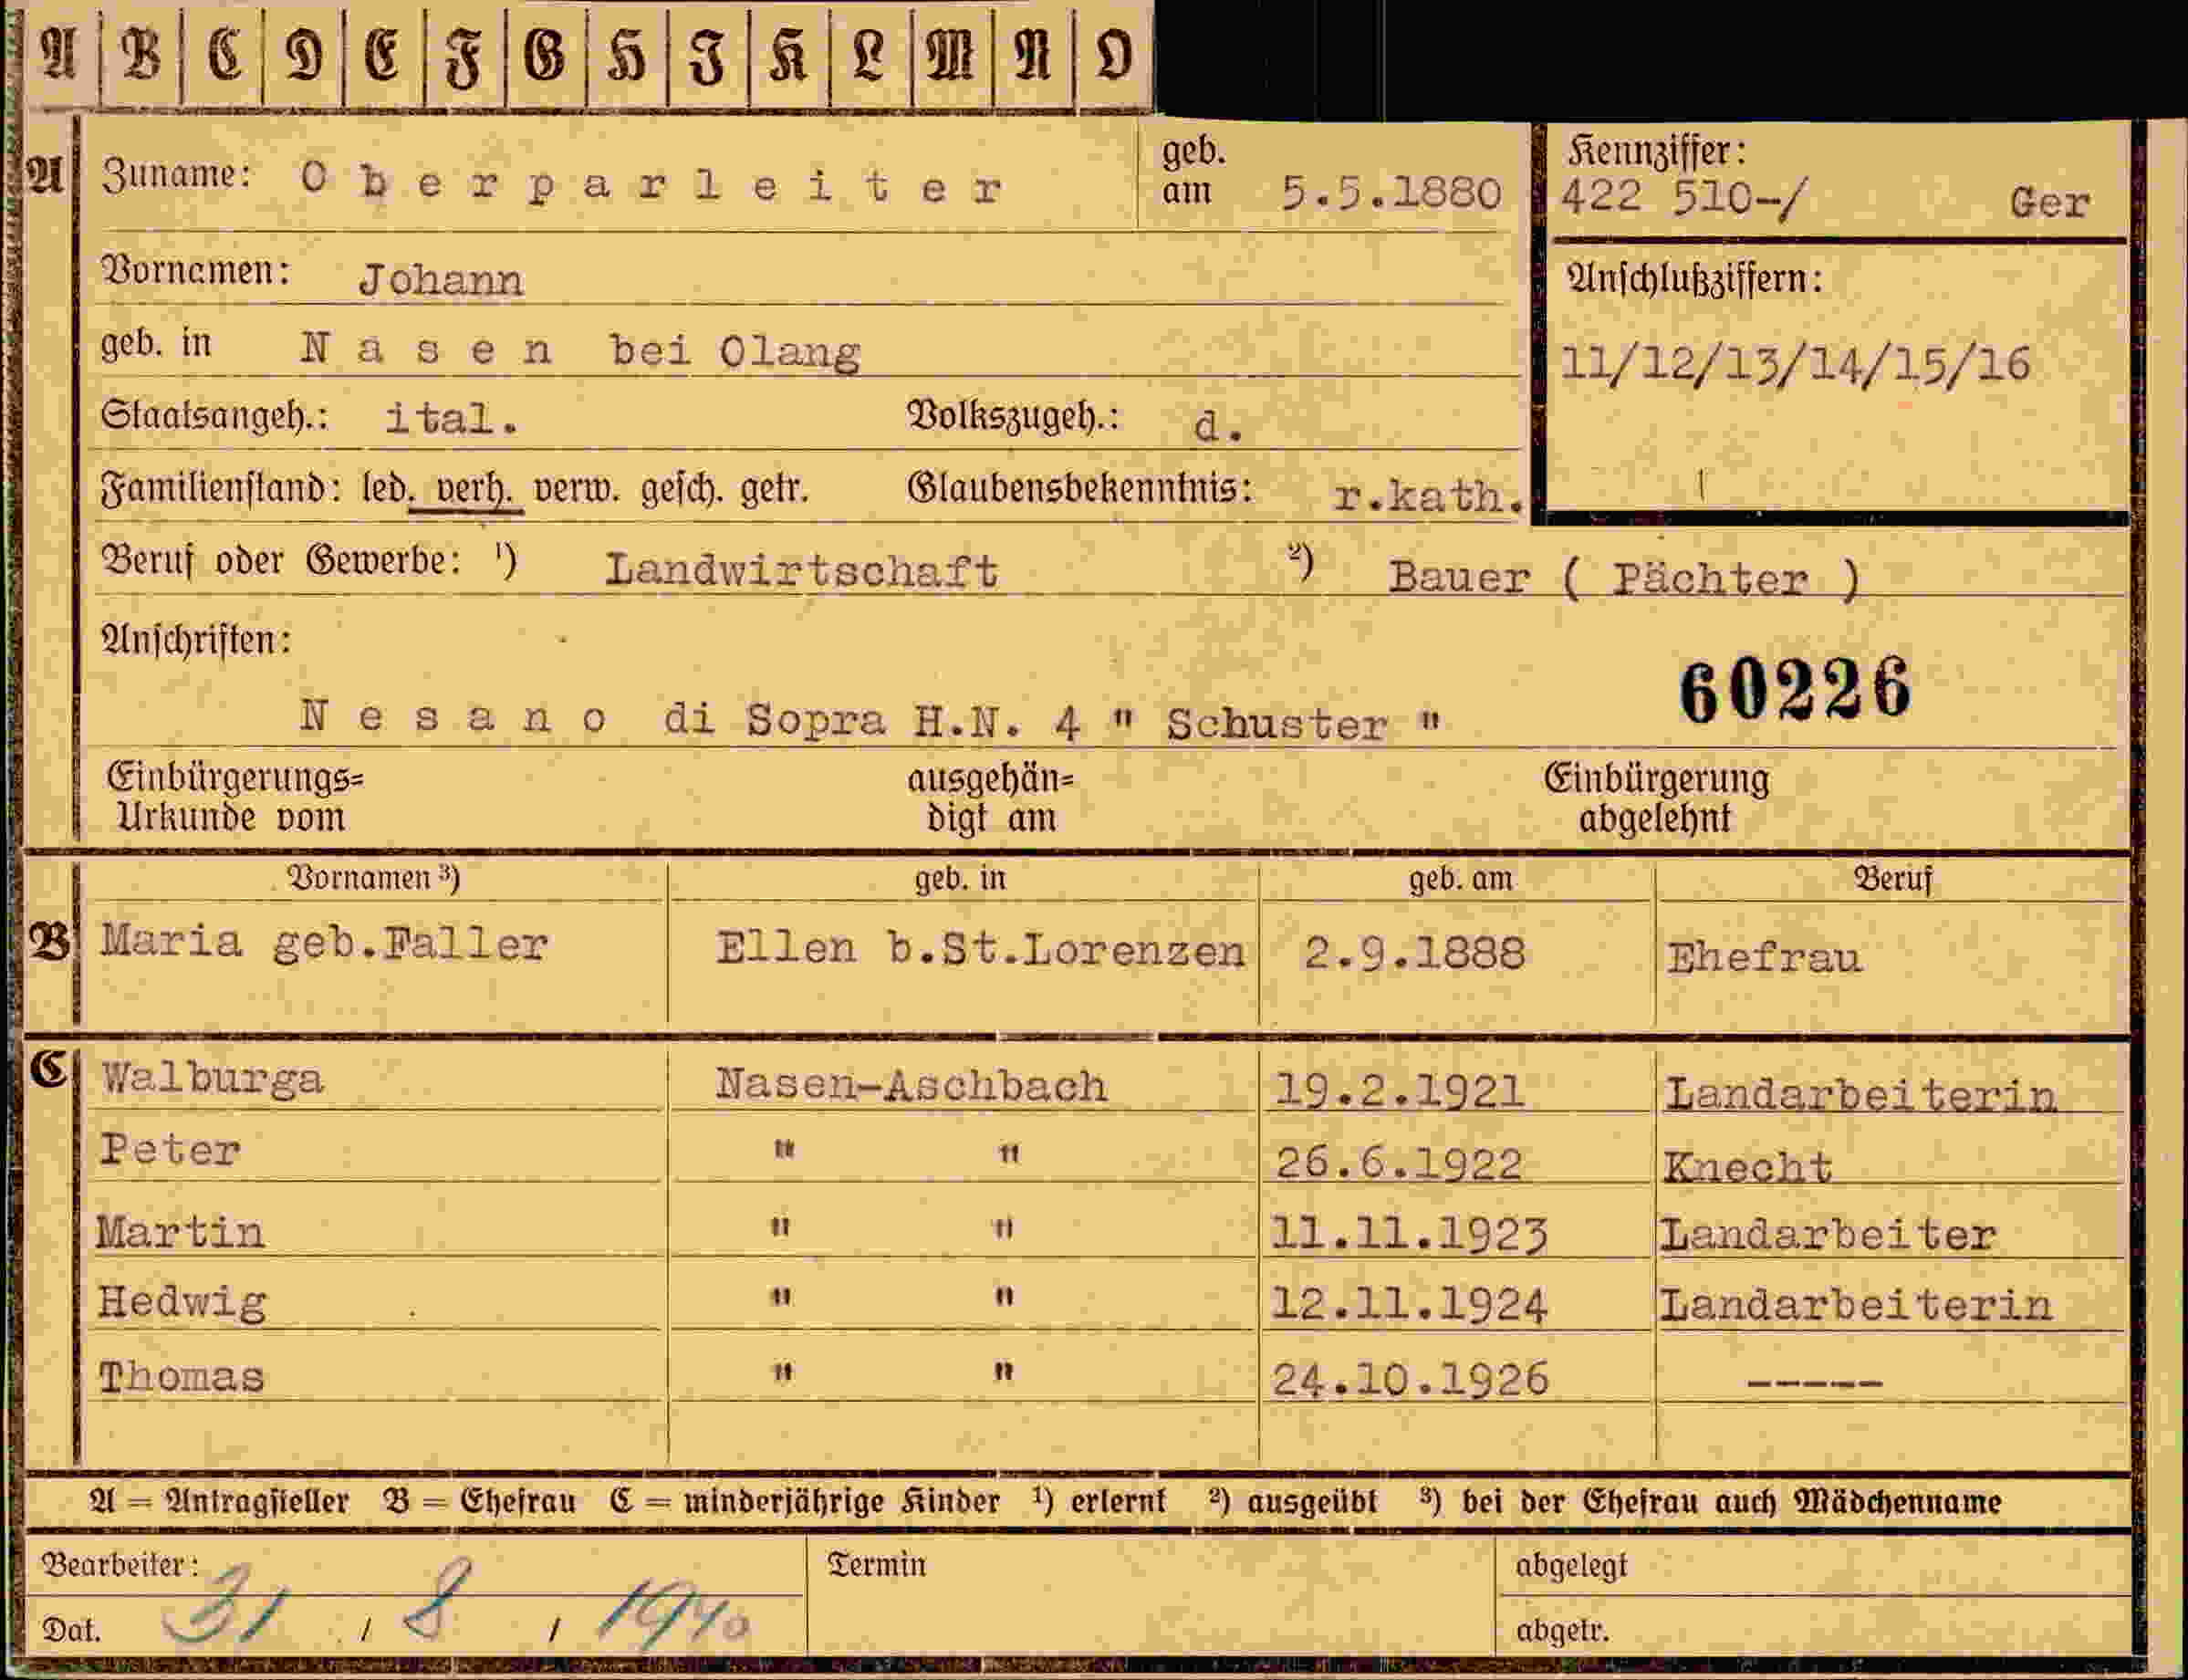 A B C D E F G H I K L M N O
A Zuname: Oberparleiter geb. am 5.5.1880
Kennziffer:
422 510-/ Ger
Vornamen: Johann
Anschlußziffern:
geb. in Nasen bei Olang
11/12/13/14/15/16
Staatsangeh.: ital. Volkszugeh.: d.
Familienstand: led. verh. verw. gesch. getr. Glaubensbekenntnis: r.kath.
Beruf oder Gewerbe: ¹) Landwirtschaft ²) Bauer ( Pächter )
Anschriften:
60226
Nesano di Sopra H.N. 4 " Schuster "
Einbürgerungs= ausgehän= Einbürgerung
Urkunde vom digt am abgelehnt
Vornamen ³) geb. in geb. am Beruf
B Maria geb.Faller Ellen b.St.Lorenzen 2.9.1888 Ehefrau
C Walburga Nasen-Aschbach 19.2.1921 Landarbeiterin
Peter " " 26.6.1922 Knecht
Martin " " 11.11.1923 Landarbeiter
Hedwig " " 12.11.1924 Landarbeiterin
Thomas " " 24.10.1926 -----
A = Antragsteller B = Ehefrau C = minderjährige Kinder ¹) erlernt ²) ausgeübt ³) bei der Ehefrau auch Mädchenname
Bearbeiter: Termin abgelegt
Dat. 31 / 8 / 1940 abgetr.